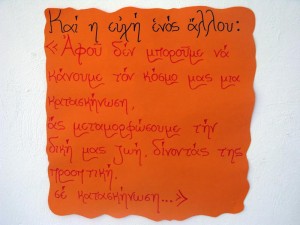 Καί η ευχή ενός άλλου:
«Αφού δέν μπορούμε νά
κάνουμε τόν κόσμο μας μια
κατασκήνωση,
άς μεταμορφώσουμε τήν
δική μας ζωή, δίνοντάς της
προοπτική.
σέ κατασκήνωση...»